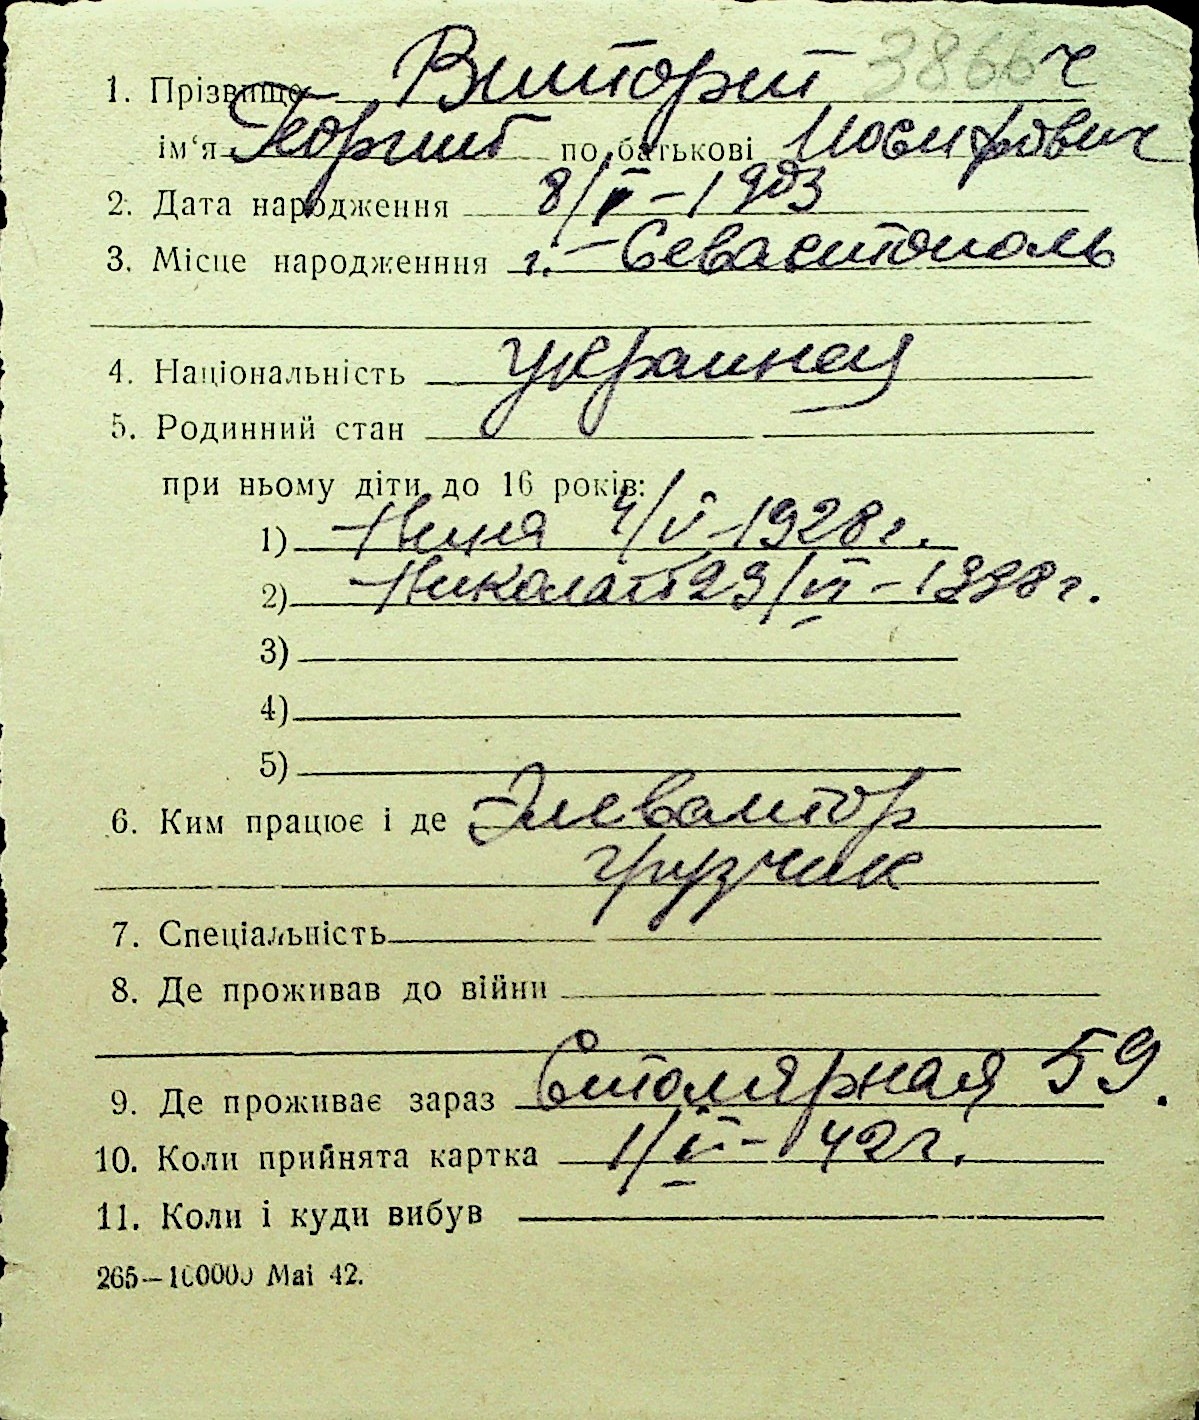 1. Прізвище Виторит 3866 ч
ім‘я Георгий по батькові Иосифович
2. Дата народження 8/V – 1903
3. Місце народженння г. – Севастополь
4. Національність украинец
5. Родинний стан
при ньому діти до 16 років:
1) Нина 4/V – 1928 г.
2) Николай 29/VI – 1938 г.
3)
4)
5)
6. Ким працює і де Элеватор
грузчик
7. Спеціальність
8. Де проживав до війни
9. Де проживає зараз Столярная 59.
10. Коли прийнята картка 1/VI – 42 г.
11. Коли і куди вибув
265—100000 Mai 42.